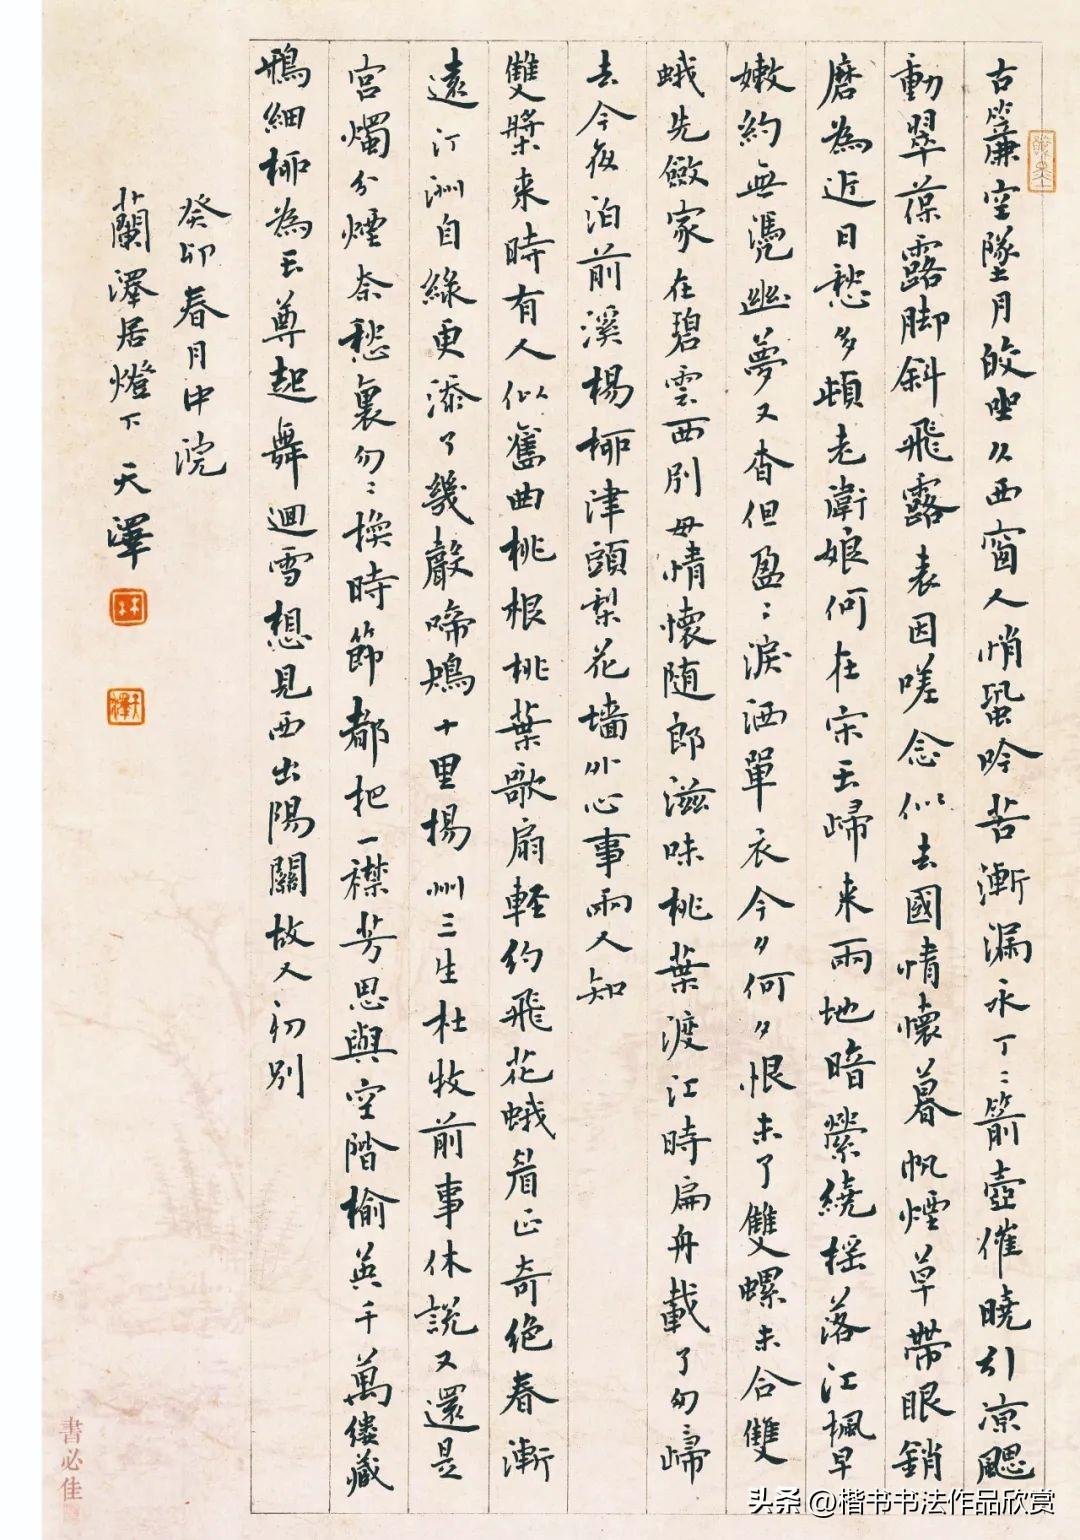 古簾空墜月皎坐久西窗人悄蛩吟苦漸漏永丁〻箭壺催曉引凉颸
動翠葆露脚斜飛露表因嗟念似去國情懷暮帆煙草帶眼銷
磨為近日愁多頓老衛娘何在宋玉歸来兩地暗縈繞摇落江楓早
嫩約無憑幽夢又杳但盈〻淚洒單衣今〃何〃恨未了雙螺未合雙
蛾先斂家在碧雲西別母情懷随郎滋味桃葉渡江時扁舟載了匆歸
去今夜泊前溪楊柳津頭梨花墻外心事兩人知
雙槳来時有人似舊曲桃根桃葉歌扇輕約飛花蛾眉正奇绝春漸
遠汀洲自綠更添了幾聲啼鴂十里揚州三生杜牧前事休說又還是
宮燭分煙奈愁裏匆〻換時節都把一襟芳思與空階榆莢千萬縷藏
鴉細柳為玉尊起舞迴雪想見西出陽關故人初別
癸卯春月中浣
蘭澤居燈下 天澤
天澤
書必佳
头条 @楷书书法作品欣赏